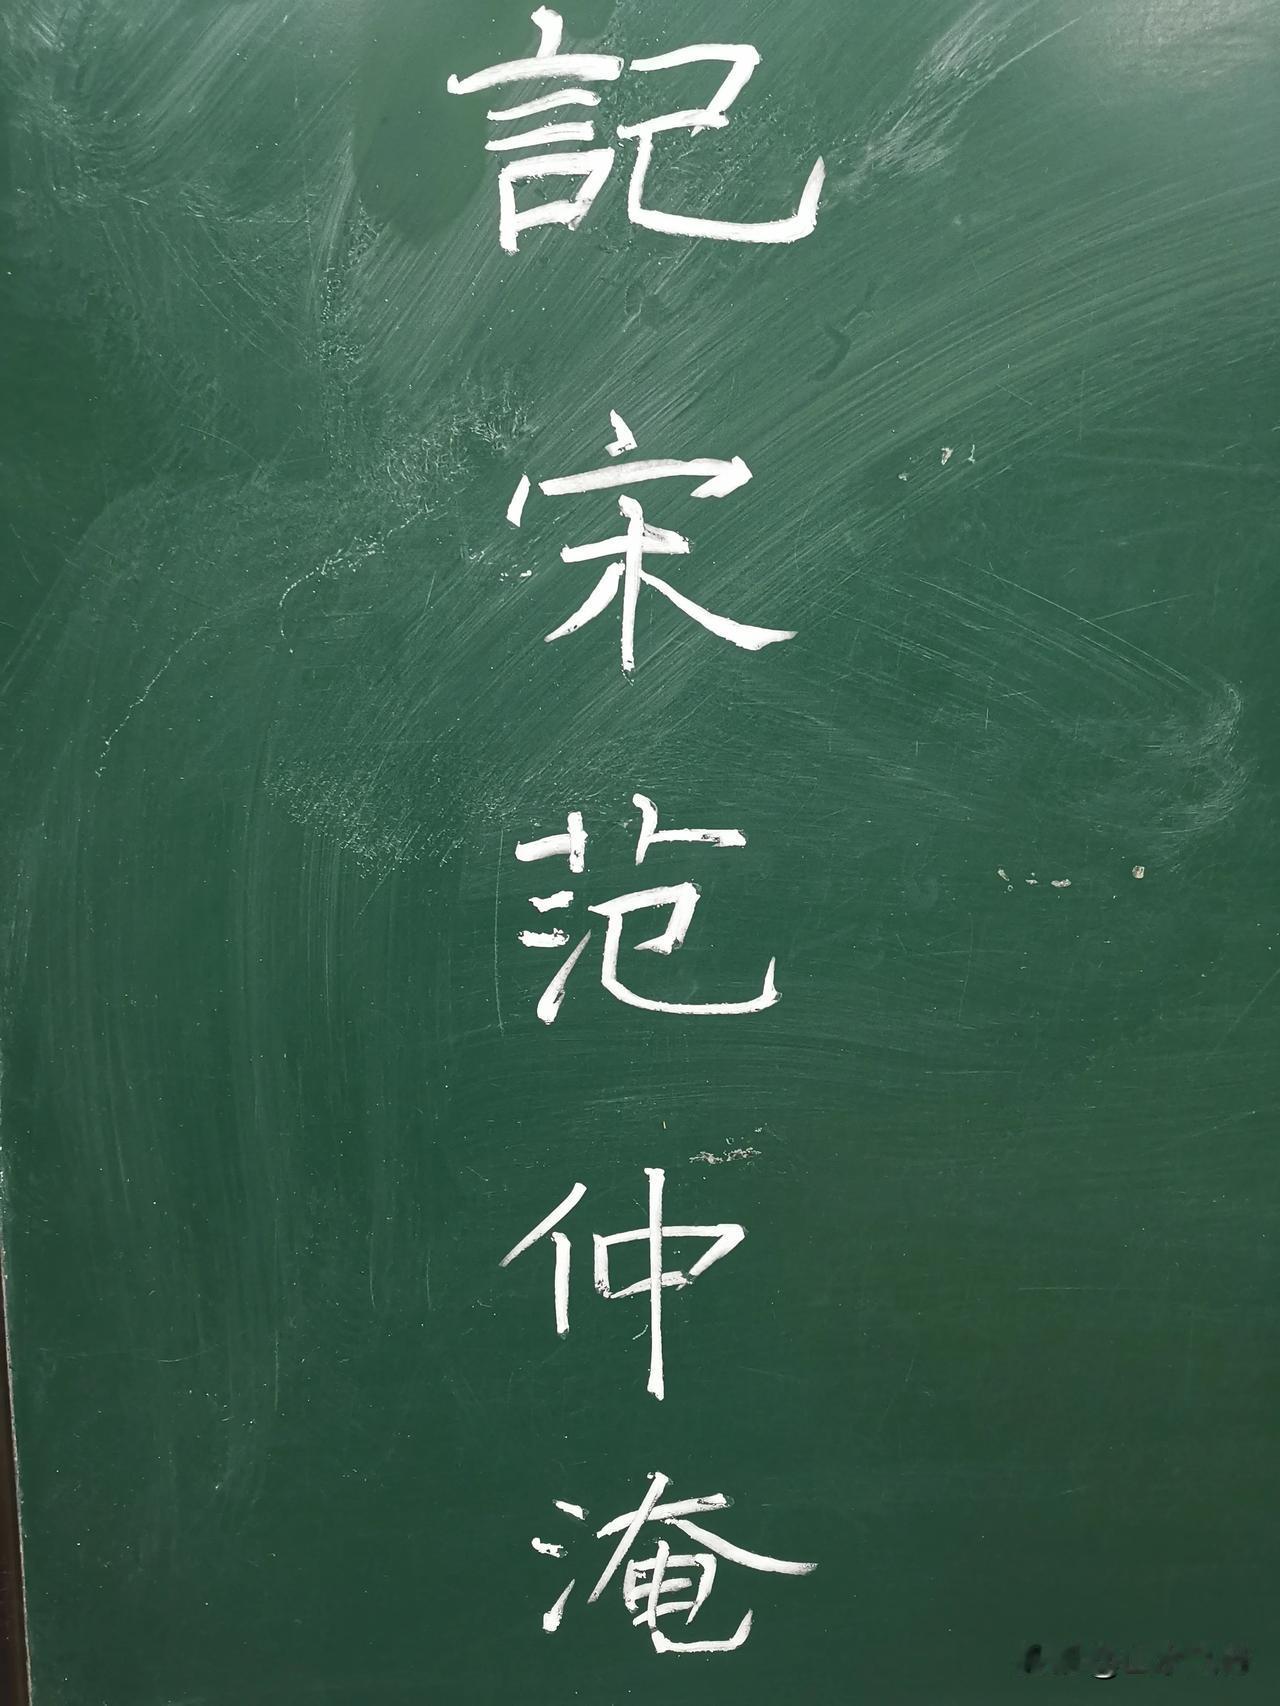 記宋范仲淹